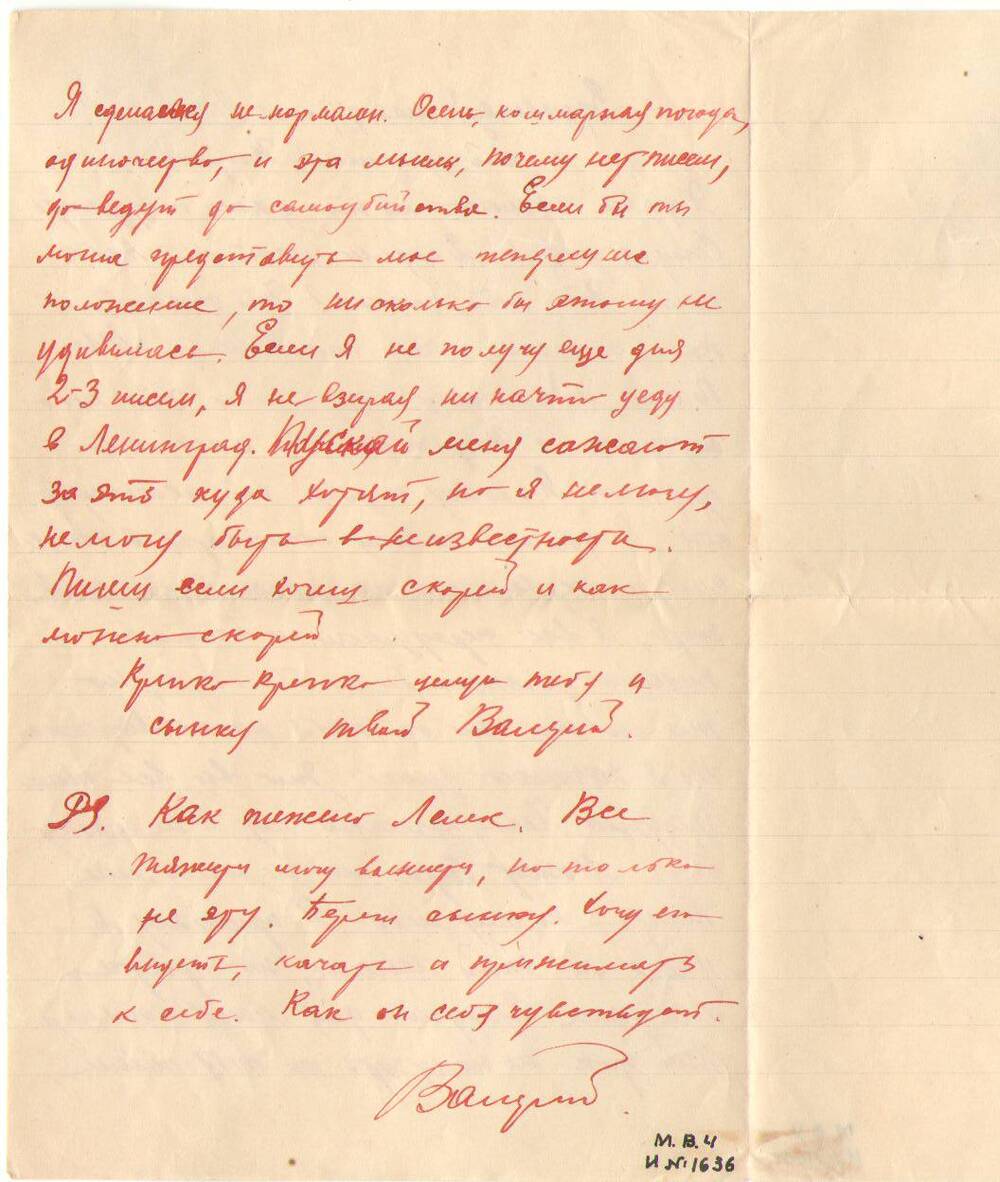 Я сделался не нормален. Осень, кошмарная погода,
одиночество, и эта мысль, почему нет писем,
до ведут до самоубийства. Если бы ты
могла представить мое теперешнее
положение, то нисколько бы этому не
удивилась. Если я не получу еще дня
2-3 писем, я не взирая ни начто уеду
в Ленинград. Пускай меня сажают
за это куда хотят, но я немогу,
немогу быть в неизвестности.
Пиши если хочеш скорей и как
можно скорей
Крепко крепко целую тебя и
сынку твой Валерий.
PS. Как тяжело Лелек. Все
тяжести могу вынести, но только
не эту. Береги сынку. Хочу его
видеть, качать и прижимать
к себе. Как он себя чувствует.
Валерий.
М.В.4
И №1636